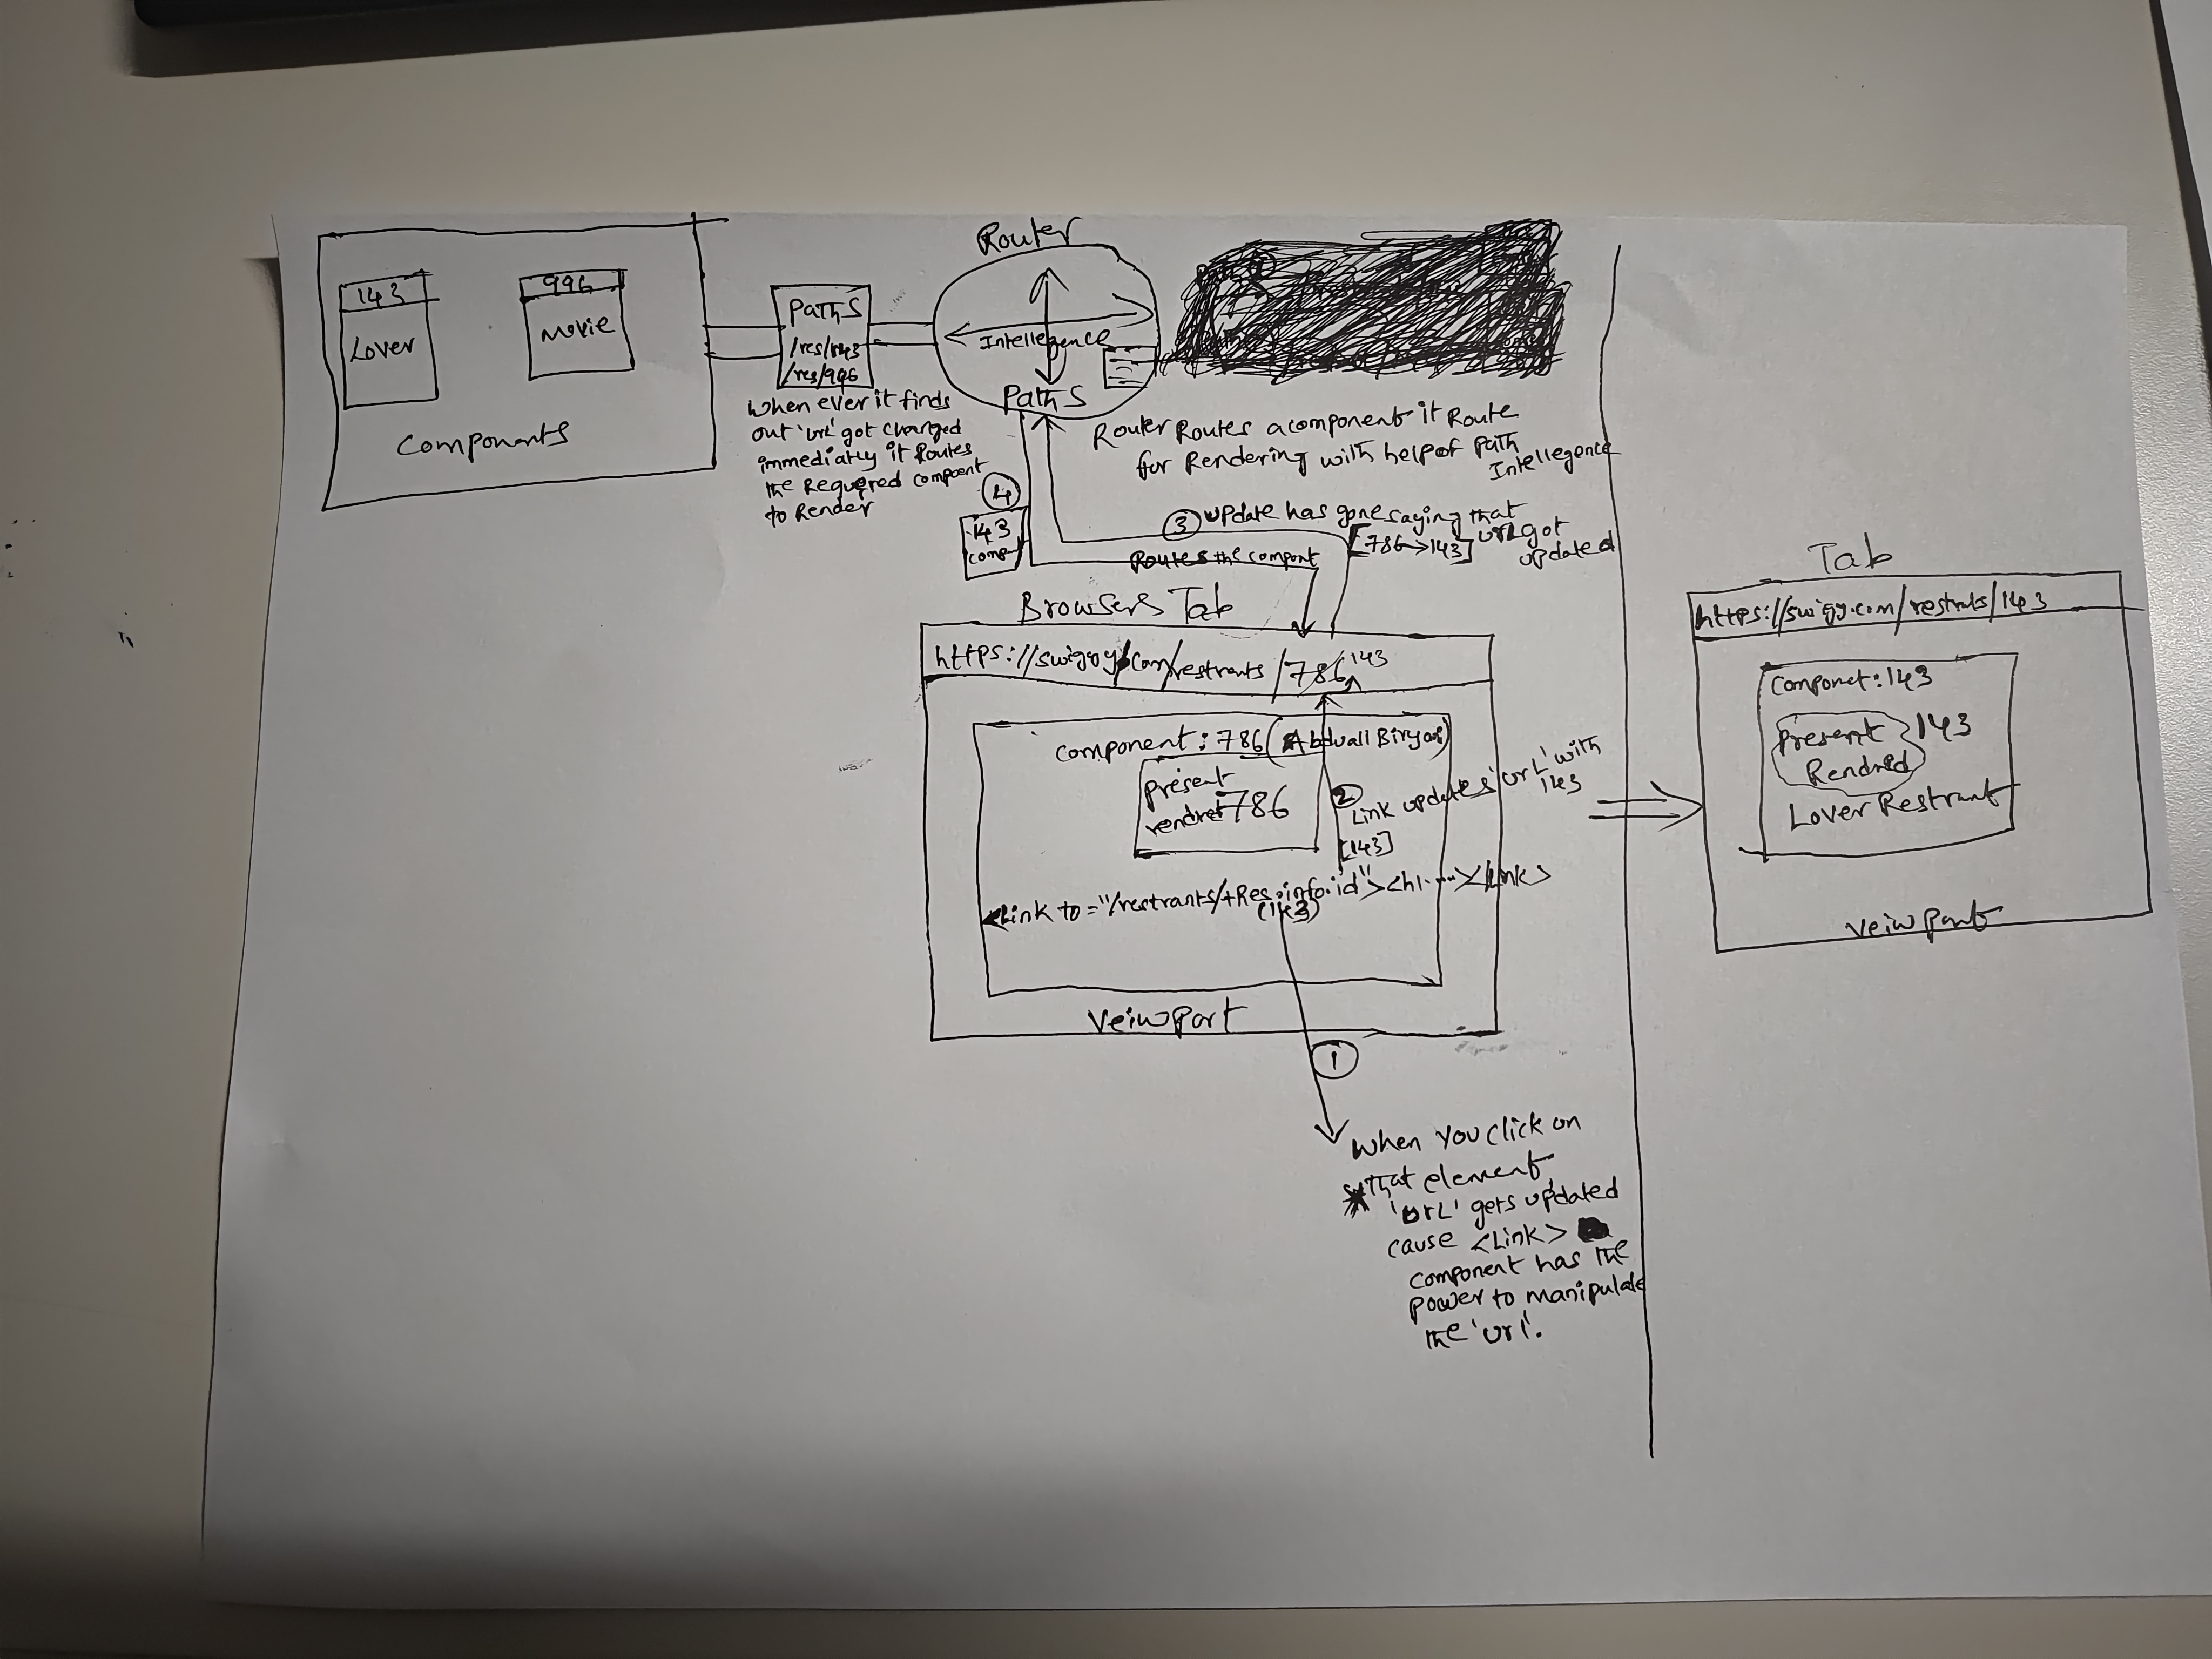 143
Lover
996
Movie
Components
Paths
/res/143
/res/996
When ever it finds
out 'url' got changed
immediatly it Routes
the Requered compoent
to Render
Router
Intellegence
Paths
Router Routes a component it Route
for Rendering with help of Path
Intellegence
4
143
comp
3 update has gone saying that
[786->143] url got
updated
Routes the compont
Browsers Tab
https://swiggy.com/restrants/786 143
component: 786 (Abduall Biryani)
present
rendred 786
2
Link updates 'url' with
143
[143]
<Link to="/restrants/+Res.info.id"><h1....></Link>
(143)
Veiwport
1
When you click on
that element
'url' gets updated
cause <Link>
component has the
power to manipulate
the 'url'.
Tab
https://swigy.com/restrnts/143
Componet: 143
Present 143
Rendred
Lover Restrant
Veiwport